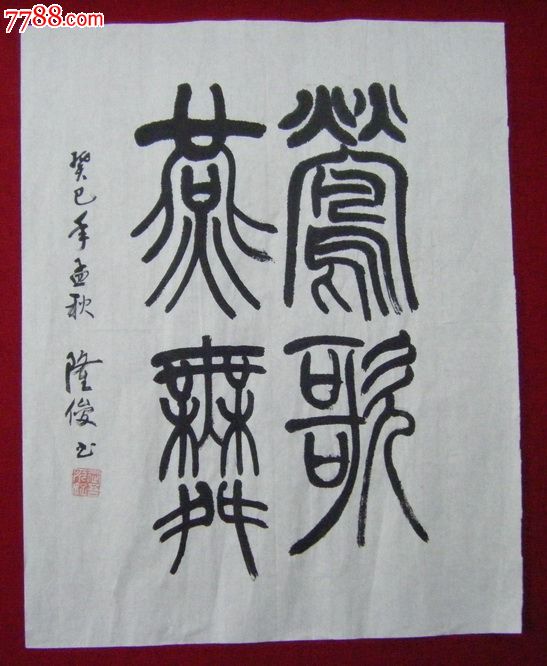 7788.com
鶯歌
燕舞
癸巳年孟秋 隆俊书